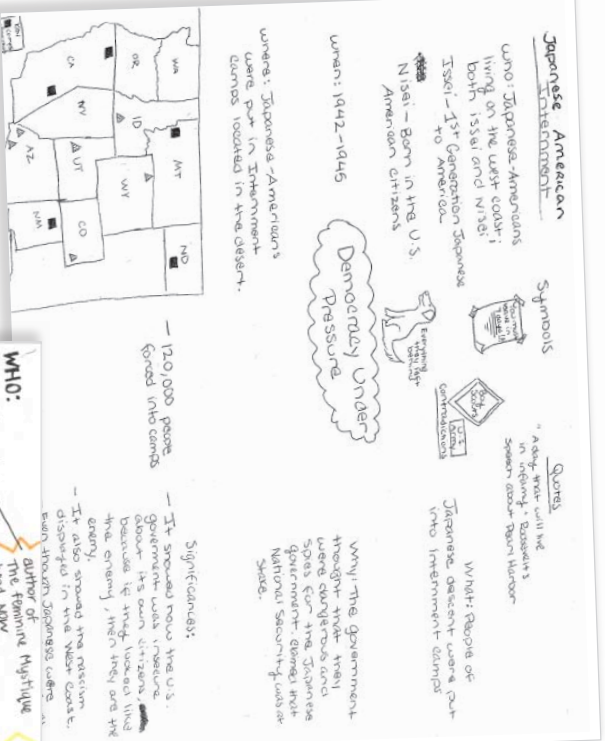 Japanese American
Internment
who: Japanese-Americans
living on the west coast;
both issei and Nisei
Issei - 1st Generation Japanese
to America
Nisei - Born in the U.S.
American citizens
when: 1942-1945
where: Japanese-Americans
were put in Internment
camps located in the desert.
WA
OR
CA
ID
NV
MT
WY
UT
AZ
CO
NM
ND
Symbols
You must
move in
7 days!!!
Boy
Scouts
U.S.
Army
contradictions
Everything
they left
behind
Democracy Under
Pressure
- 120,000 people
forced into camps
Quotes
"A day that will live
in infamy" Roosevelt's
speech about Pearl Harbor
What: People of
Japanese descent were put
into Internment camps
Why: The government
thought that they
were dangerous and
spies for the Japanese
government. claimed that
National security was at
stake.
Significances:
- It showed how the U.S.
government was insecure
about its own citizens,
because if they looked like
the enemy, then they are the
enemy.
- It also showed the rascism
displayed in the West coast.
even though Japanese were
WHO:
author of
The feminine Mystique